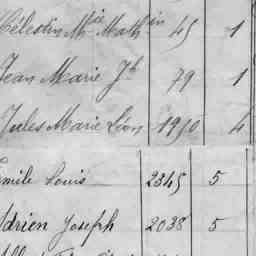 Célestin Mie Mathin 45 1
Jean Marie Jh 79 1
Jules Marie Léon 1990 4
Emile Louis 2345 5
Adrien Joseph 2038 5